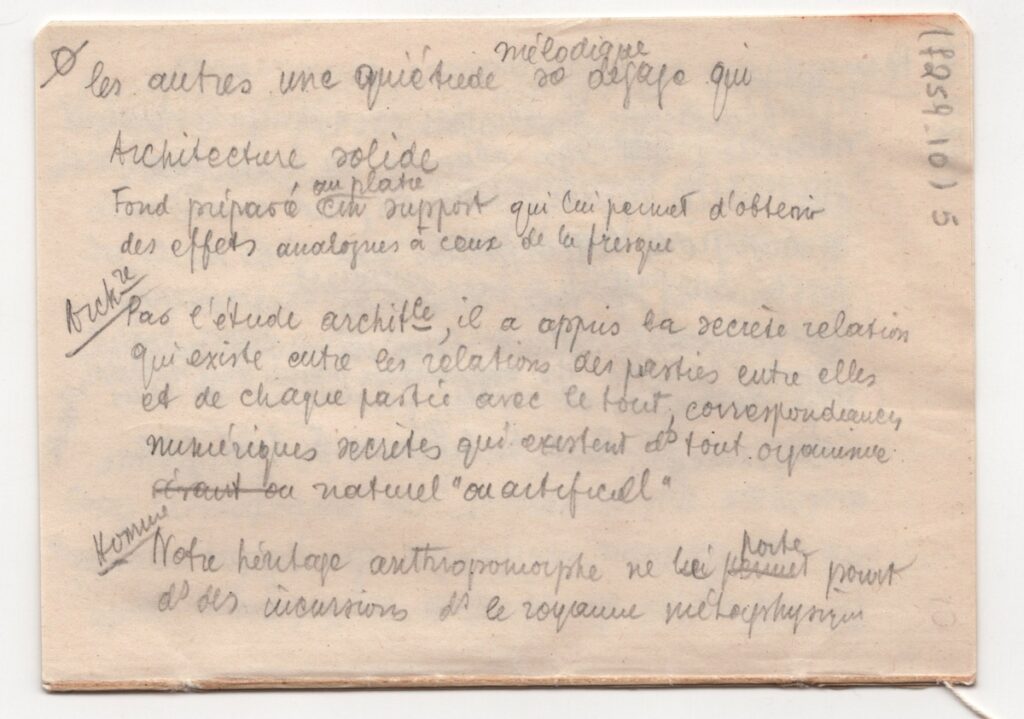 mélodique
les autres une quiétude se dégage qui
Architecture solide
au platre
Fond préparé support qui lui permet d'obtenir
des effets analogues à ceux de la fresque
Archre
Par l'étude archittle, il a appris la secrète relation
qui existe entre les relations des parties entre elles
et de chaque partie avec le tout, correspondances
numériques secrètes qui existent ds tout organisme
vivant ou naturel "ou artificiell"
Homme
porte
Notre héritage anthropomorphe ne lui permet point
ds des incursions ds le royaume métaphysique
(7259_10) 5